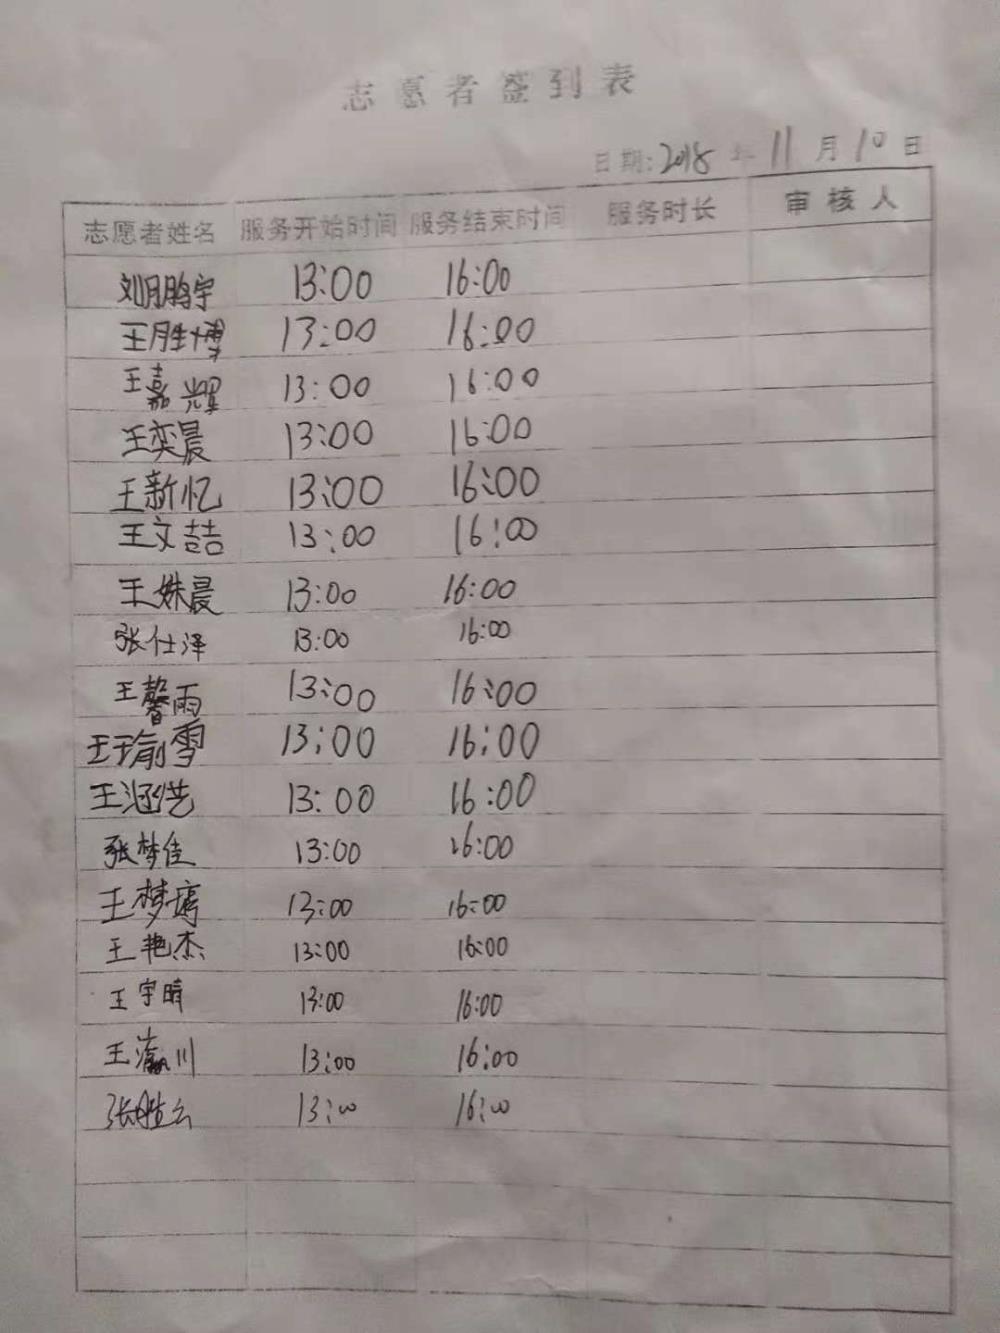 志愿者签到表
日期:2018年11月10日
志愿者姓名 服务开始时间 服务结束时间 服务时长 审核人
刘鹏宇 13:00 16:00
王胜博 13:00 16:00
王嘉辉 13:00 16:00
王奕晨 13:00 16:00
王新忆 13:00 16:00
王文喆 13:00 16:00
王姝晨 13:00 16:00
张仕泽 13:00 16:00
王馨雨 13:00 16:00
王瑜雪 13:00 16:00
王涵 13:00 16:00
张梦佳 13:00 16:00
王梦 13:00 16:00
王艳杰 13:00 16:00
王宇晴 13:00 16:00
王瀛川 13:00 16:00
张胜云 13:00 16:00